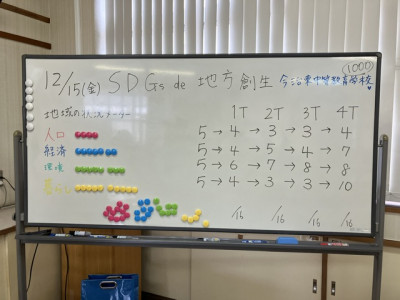 (1000)
12/15(金) SDGs de 地方創生 今治東中等教育学校
地域の状況メーター
1T 2T 3T 4T
人口 5→4→3→3→4
経済 5→4→5→4→7
環境 5→6→7→8→8
暮らし 5→4→3→3→10
/16 /16 /16 /16